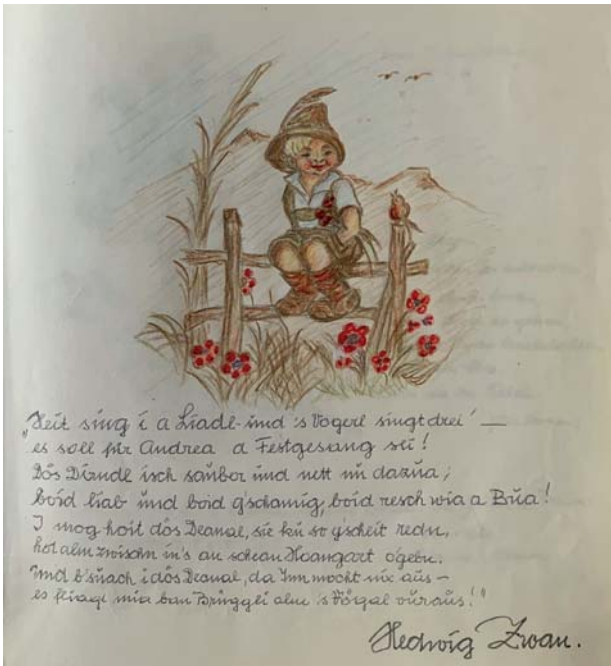 „Heit sing i a Liadl - und 's Vögerl singt drei' —
es soll für Andrea a Festgesang sei!
Dös Dirndl isch saubor und nett no dazua;
boid liab und boid g'schamig, boid resch wia a Bua!
I mog hoit dös Deanal, sie ku so g'scheit redn,
hot alm zwischn in's an schean Hoangart o'gebn.
Und b'suach i dös Deanal, da Inn mocht nix aus —
es fliagt mia ban Brüggli alm 's Vögal vüraus!"
Hedwig Zwan.